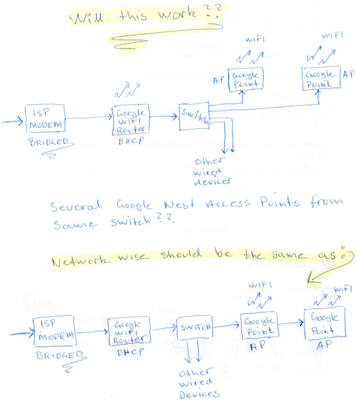 Will this work??
WiFi
WiFi
AP
Google
Point
Google
Point
AP
ISP
MODEM
BRIDGED
Google
WiFi
Router
DHCP
Switch
Other
wired
devices
Several Google Nest Access Points from
same switch??
Network wise should be the same as:
WiFi
WiFi
ISP
MODEM
BRIDGED
Google
WiFi
Router
DHCP
SWITCH
Google
Point
AP
Google
Point
AP
Other
Wired
Devices